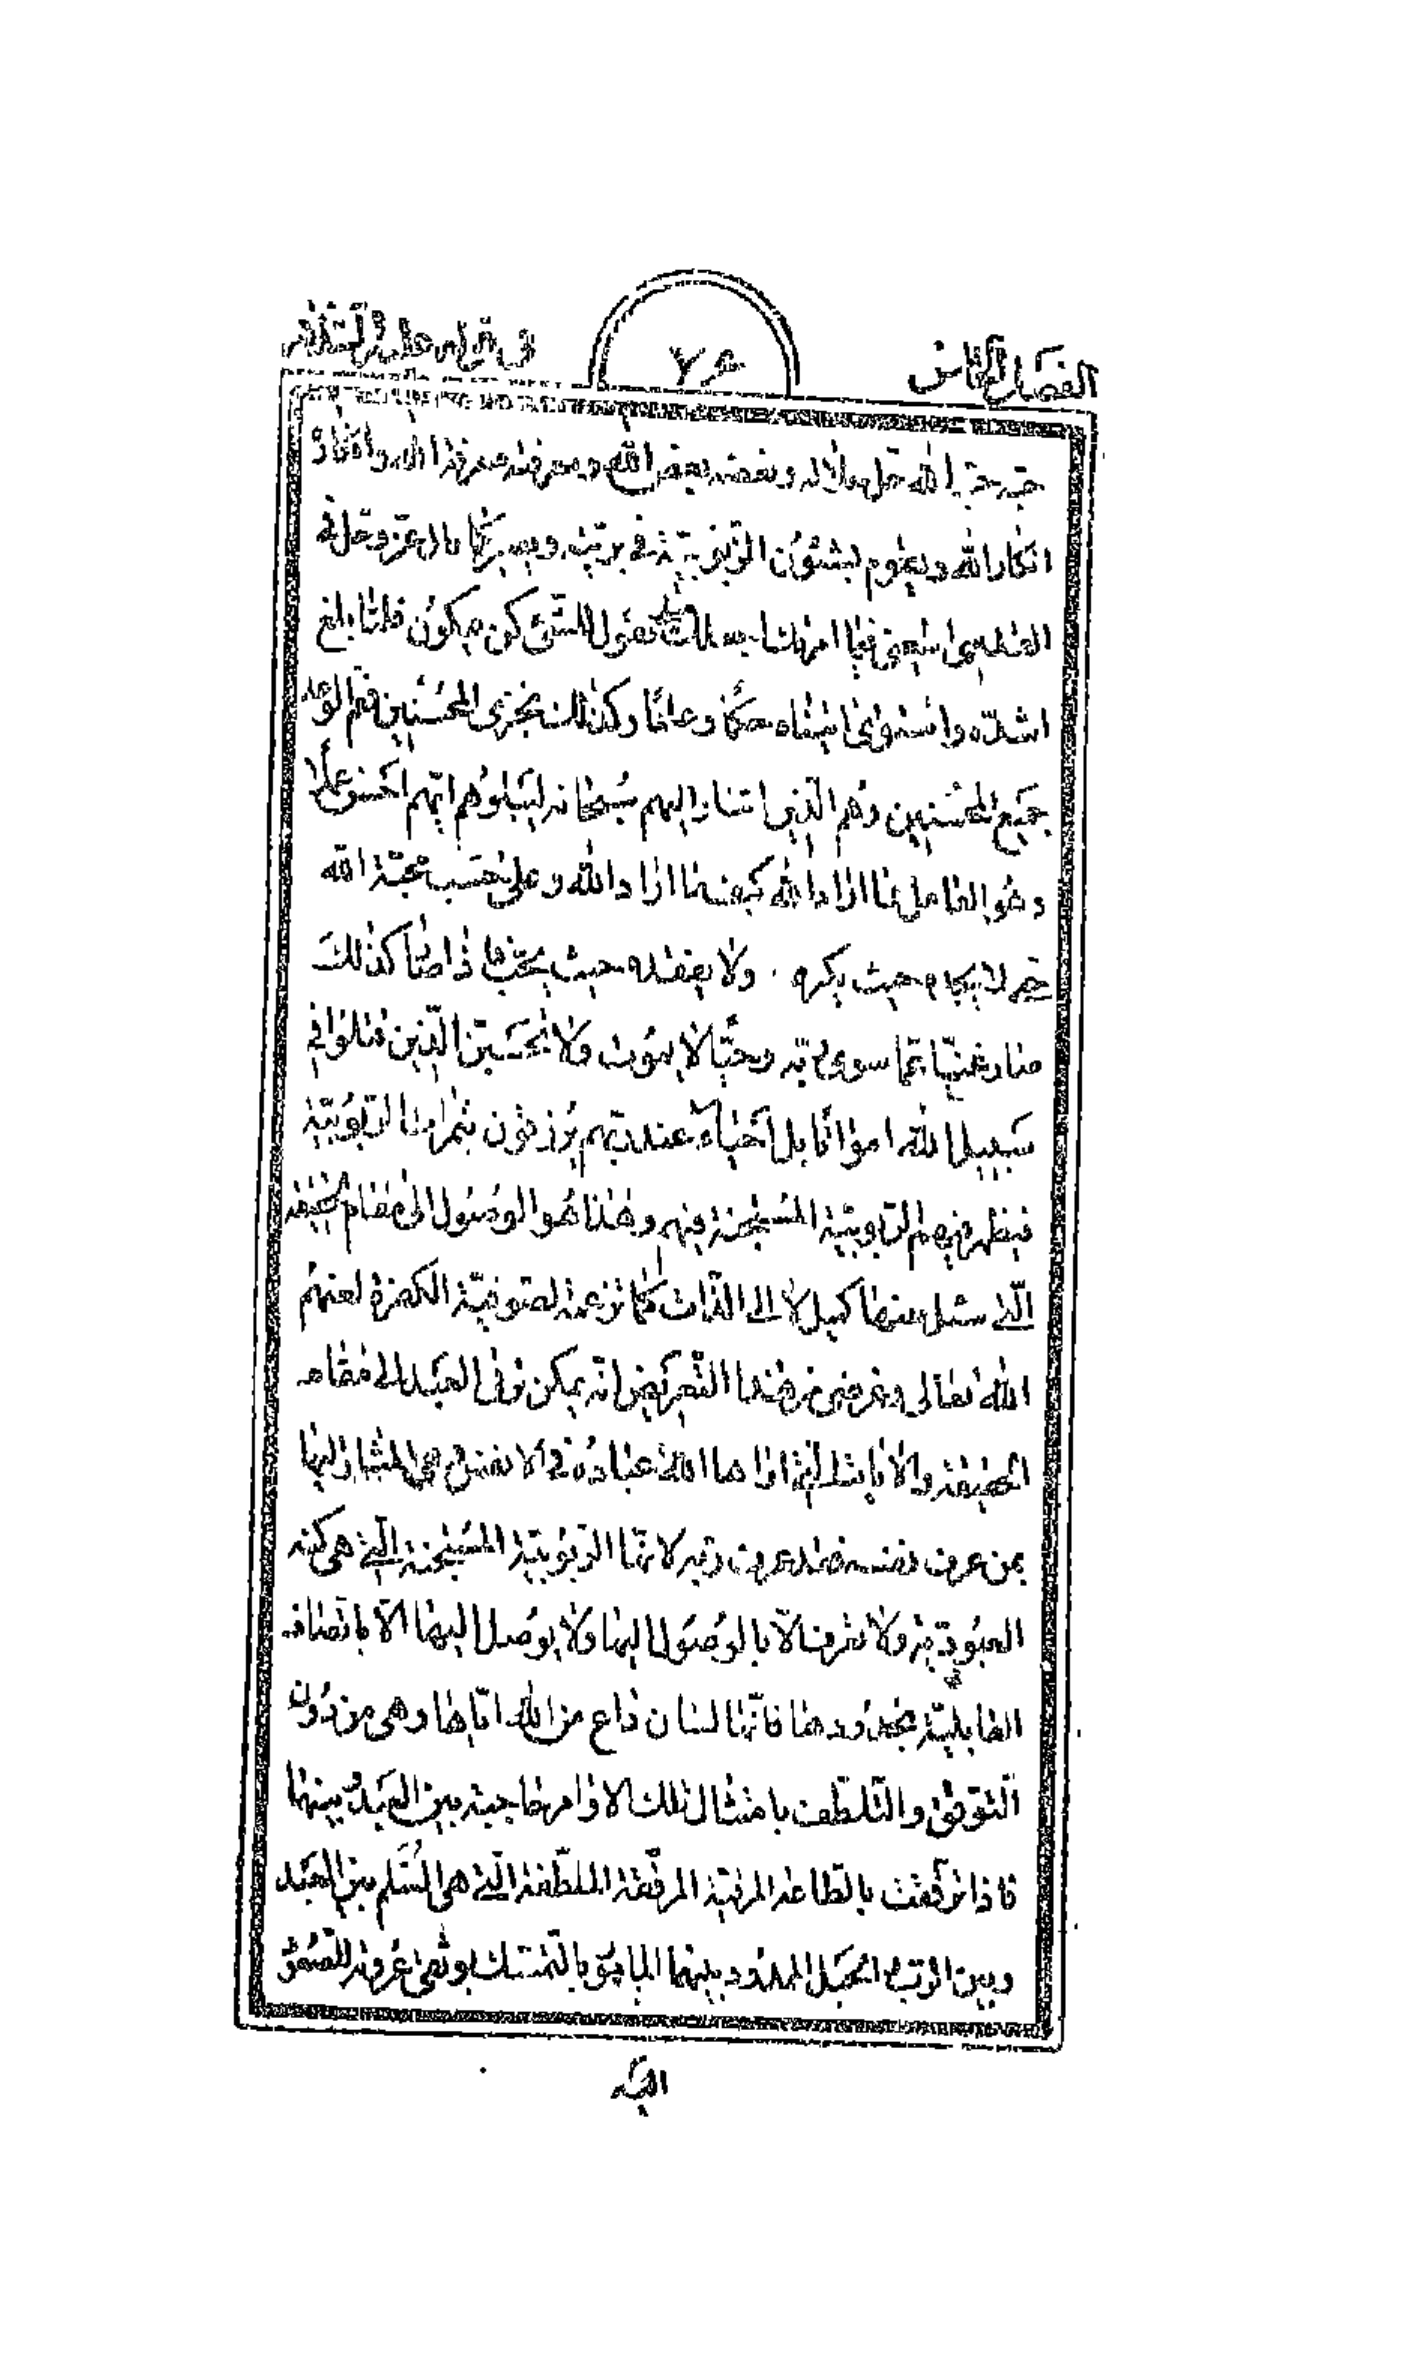 الفصل الثامن
في قوله عليه السلام
حبه حب الله جل جلاله وبغضه بغض الله ومعرفته معرفة الله وانكاره
انكار الله ويقوم بشئون الربوبية في بريته
اطعني فيما امرتك تقول للشئ كن فيكون فلما بلغ
اشده واستوى اتيناه حكما وعلما وكذلك نجزي المحسنين فتم الوعد
جميع المحسنين وهم الذين اشار اليهم سبحانه ليبلوهم ايهم احسن عملا
وهو العامل بما اراد الله كيف ما اراد الله وعلى حسب محبة الله
لا يجده حيث يكره ولا يفقده حيث يحب فاذا صار كذلك
صار غنيا عما سوى ربه وحيا لا يموت ولا تحسبن الذين قتلوا في
سبيل الله امواتا بل احياء عند ربهم يرزقون ثمرات الربوبية
فيظهر فيهم الربوبية المستجنة فيهم وهذا هو الوصول الى مقام الحقيقة
التي سئل عنها كميل لا الى الذات كما تزعمه الصوفية الكفرة لعنهم
الله تعالى وغرضي من هذا التعريض انه يمكن ترقى العبد الى مقام
الحقيقة والايات التي اراها الله عباده في الانفس هي المشار اليها
بمن عرف نفسه فقد عرف ربه لانها الربوبية المستجنة التي هي كنه
العبودية ولا تعرف الا بالوصول اليها ولا يوصل اليها الا باتصاف
القابلية بحدودها فانها لسان داع من الله اياها وهي من دون
الترقق والتلطف بامتثال تلك الاوامر حاجبة بين العبد وبينها
فاذا ترققت بالطاعة المرقية المرققة الملطفة التي هي السلم بين العبد
وبين الرب والحبل الممدود بينهما المامور بالتمسك به وهي عروة للصعود
اليه